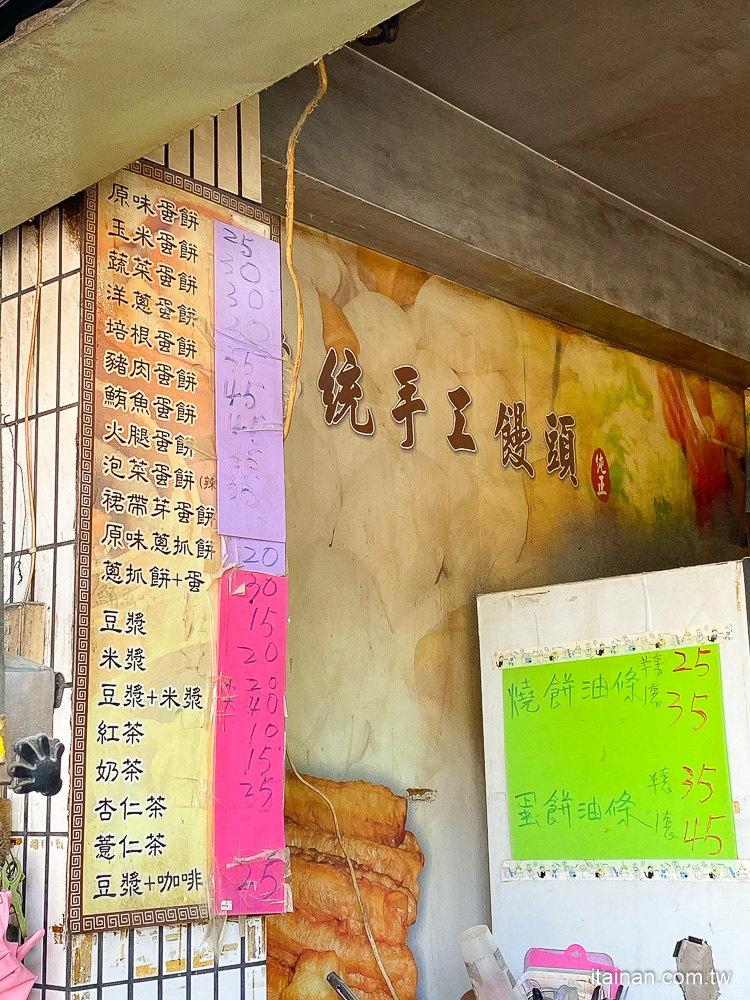 原味蛋餅
玉米蛋餅
蔬菜蛋餅
洋蔥蛋餅
培根蛋餅
豬肉蛋餅
鮪魚蛋餅
火腿蛋餅
泡菜蛋餅(辣
裙帶芽蛋餅
原味蔥抓餅
蔥抓餅+蛋
豆漿
米漿
豆漿+米漿
紅茶
奶茶
杏仁茶
薏仁茶
豆漿+咖啡
25
30
30
45
20
30
15
20
20
大 40
10
15
25
25
統手工饅頭
純正
燒餅油條 25
35
蛋餅油條 35
45
itainan.com.tw